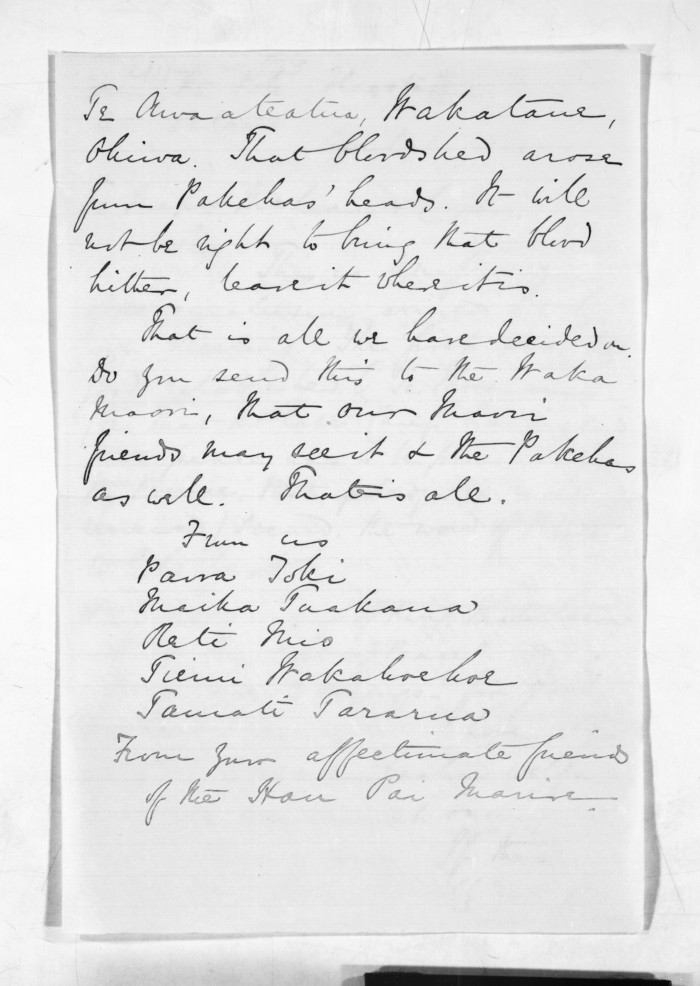 Te Awa ateatua, Wakatane,
Ohiwa. That bloodshed arose
from Pakehas' heads. It will
not be right to bring that blood
hither, leave it where it is.
That is all we have decided on.
Do you send this to the Waka
Maori, that our Maori
friends may see it & the Pakehas
as well. That is all.
From us
Paora Toki
Maika Tuakana
Reti
Tiemi Wakahoehoe
Tamati Tararua
From your affectionate friends
of the Hau Pai Marire